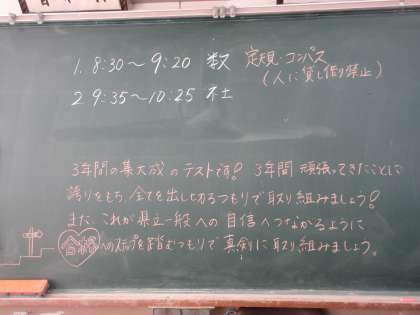 1. 8:30〜9:20 数 定規・コンパス
(人に貸し借り禁止)
2 9:35〜10:25 社
3年間の集大成のテストです! 3年間 頑張ってきたことに
誇りをもち、全てを出し切るつもりで取り組みましょう!
また、これが県立一般への自信へつながるように
合格へのステップを踏むつもりで真剣に取り組みましょう。